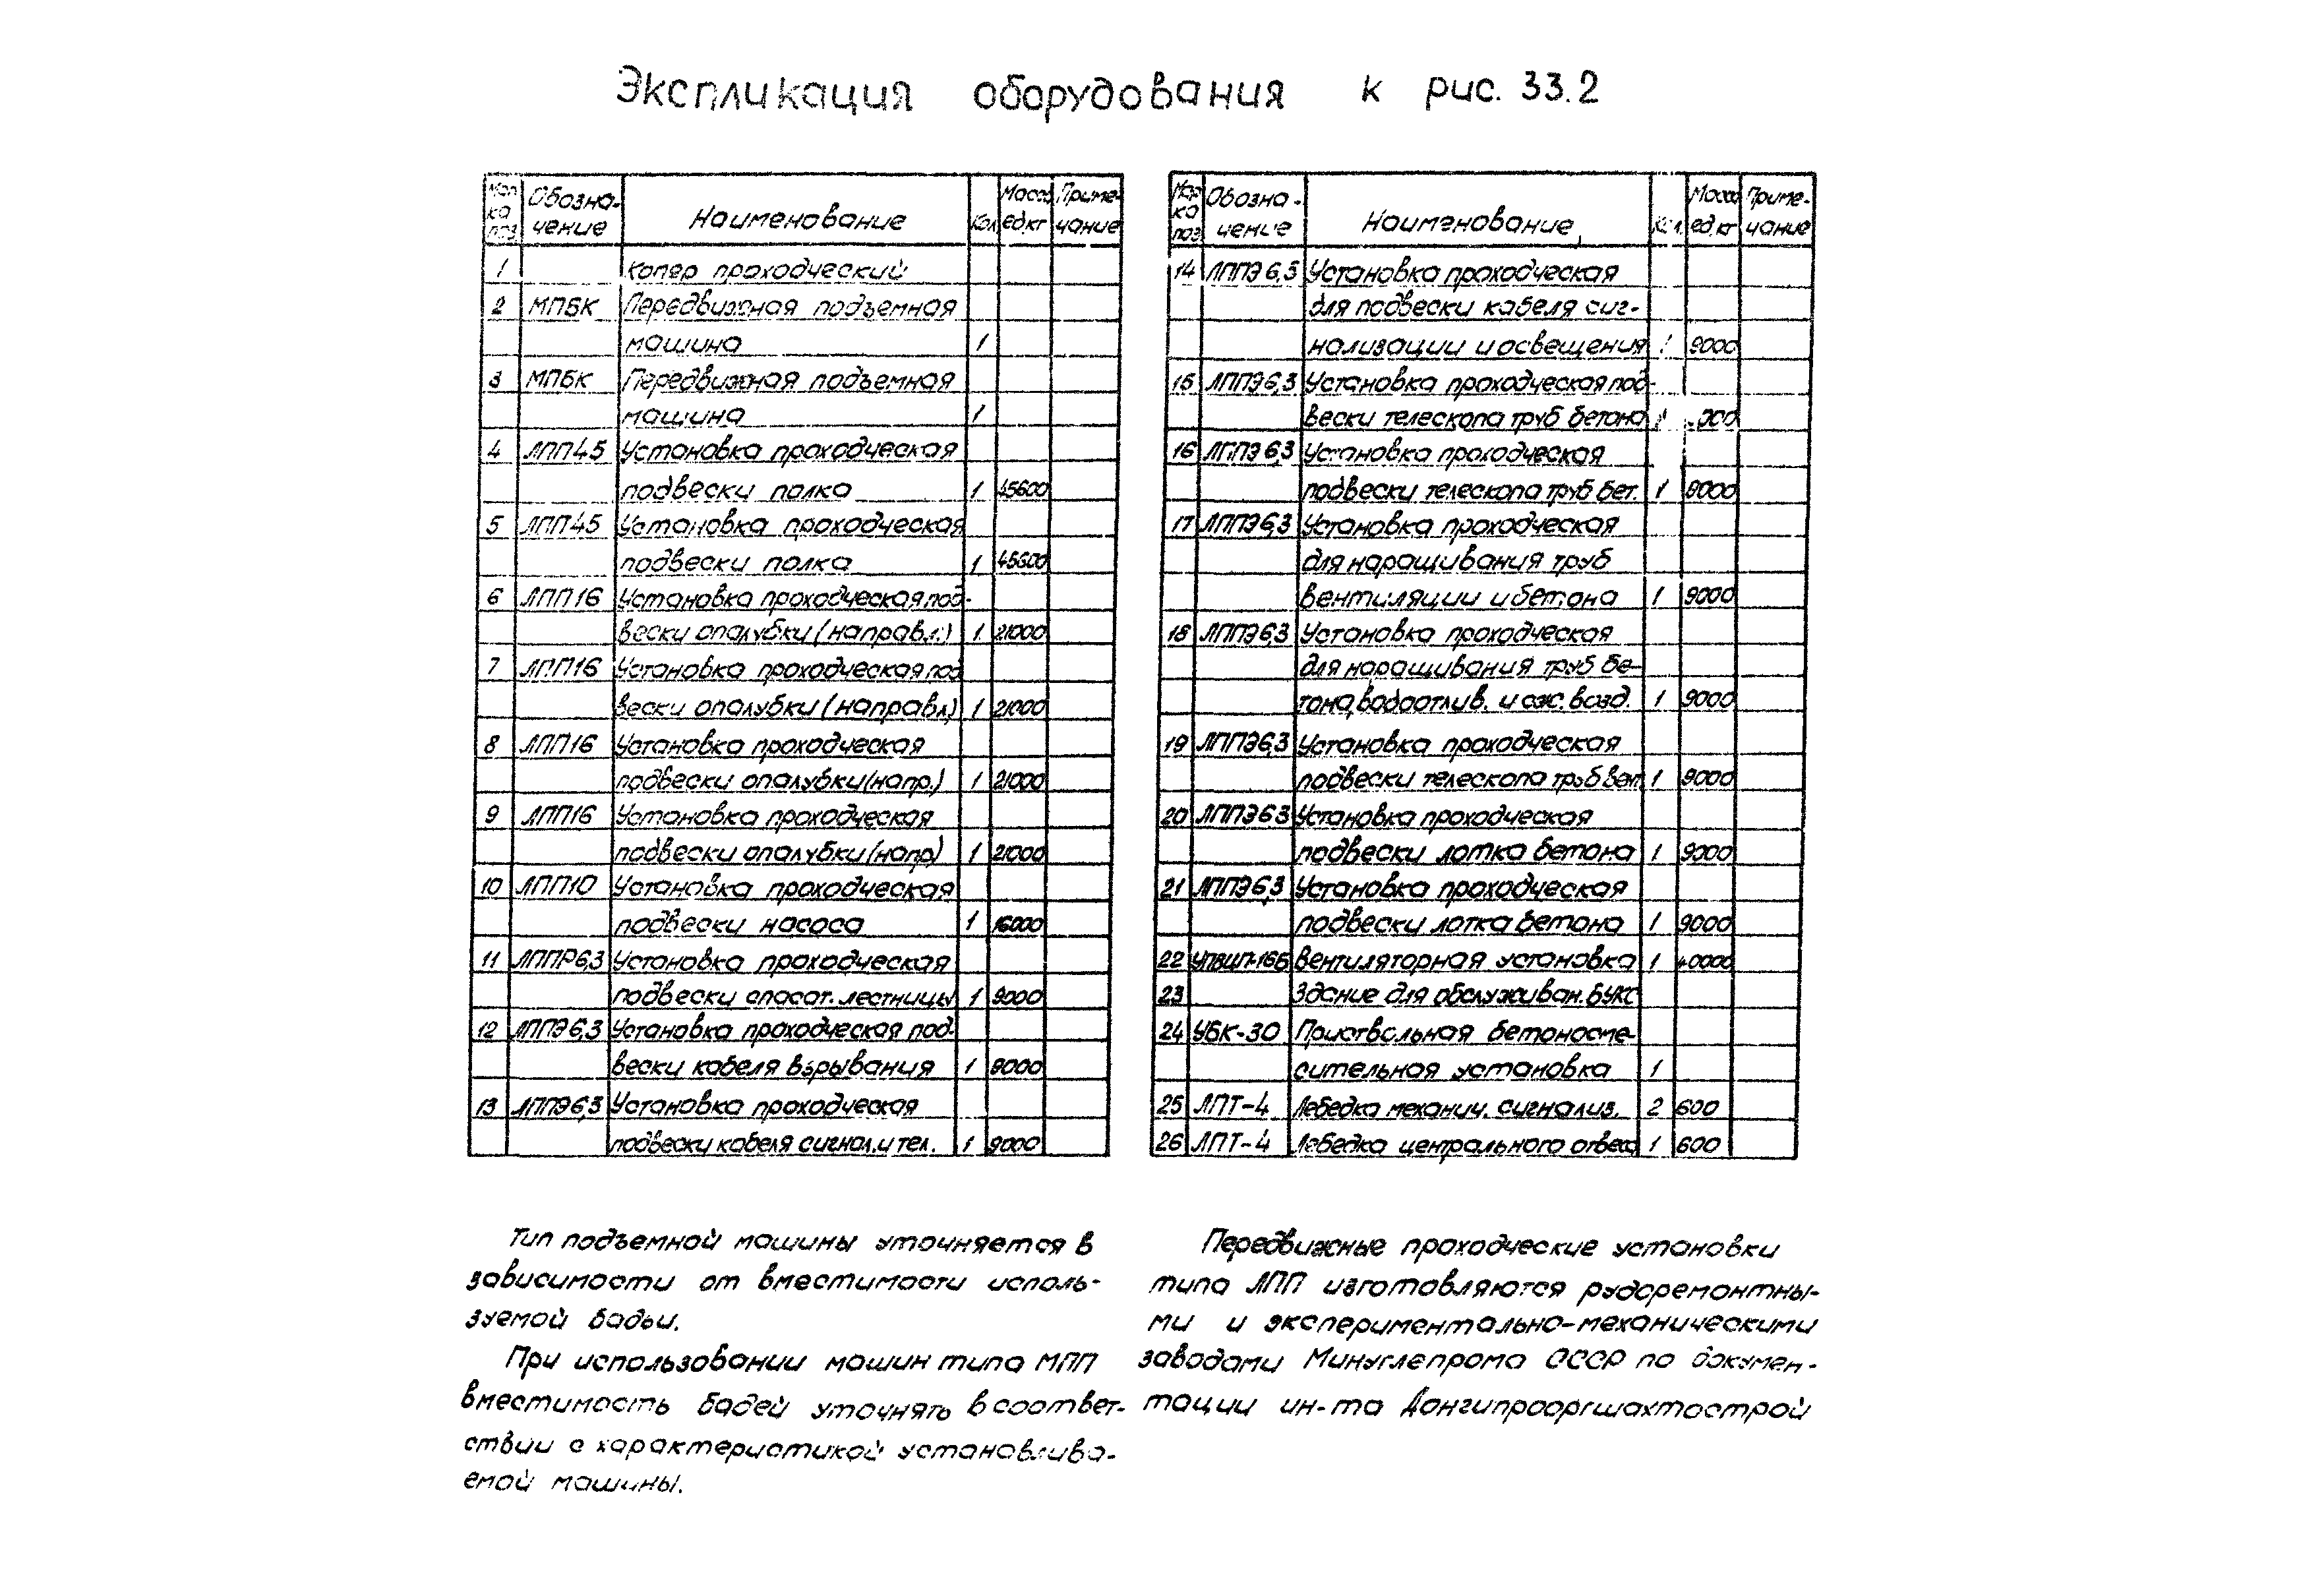 Экспликация оборудования к рис. 33.2
Мар- Обозна- Наименование Кол. Масса Приме-
ка чение ед.кг чание
поз
1 Копер проходческий
2 МПБК Передвижная подъемная
машина 1
3 МПБК Передвижная подъемная
машина 1
4 ЛПП45 Установка проходческая
подвески полка 1 45600
5 ЛПП45 Установка проходческая
подвески полка 1 45600
6 ЛПП16 Установка проходческая под-
вески опалубки (направл.) 1 21000
7 ЛПП16 Установка проходческая под
вески опалубки (направл.) 1 21000
8 ЛПП16 Установка проходческая
подвески опалубки (напр.) 1 21000
9 ЛПП16 Установка проходческая
подвески опалубки (напр) 1 21000
10 ЛПП10 Установка проходческая
подвески насоса 1 16000
11 ЛППР6,3 Установка проходческая
подвески спасат. лестницы 1 9000
12 ЛППЭ6,3 Установка проходческая под-
вески кабеля взрывания 1 9000
13 ЛППЭ6,3 Установка проходческая
подвески кабеля сигнал. и тел. 1 9000
Мар- Обозна- Наименование Масса Приме-
ка чение ед.кг чание
поз
14 ЛППЭ6,3 Установка проходческая
для подвески кабеля сиг-
нализации и освещения 1 9000
15 ЛППЭ6,3 Установка проходческая под-
вески телескопа труб бетона
16 ЛППЭ6,3 Установка проходческая
подвески телескопа труб бет. 1 9000
17 ЛППЭ6,3 Установка проходческая
для наращивания труб
вентиляции и бетона 1 9000
18 ЛППЭ6,3 Установка проходческая
для наращивания труб бе-
тона, водоотлив. и сж. возд. 1 9000
19 ЛППЭ6,3 Установка проходческая
подвески телескопа труб вент. 1 9000
20 ЛППЭ6,3 Установка проходческая
подвески лотка бетона 1 9000
21 ЛППЭ6,3 Установка проходческая
подвески лотка бетона 1 9000
22 УПВЦП-16Б Вентиляторная установка 1 40000
23 Здание для обслуживан. БУКС
24 УБК-30 Приствольная бетоносме-
сительная установка 1
25 ЛПТ-4 Лебедка механич. сигнализ. 2 600
26 ЛПТ-4 Лебедка центрального отвеса 1 600
Тип подъемной машины уточняется в
зависимости от вместимости исполь-
зуемой бадьи.
При использовании машин типа МПП
вместимость бадей уточнять в соответ-
ствии с характеристикой устанавлива-
емой машины.
Передвижные проходческие установки
типа ЛПП изготовляются рудоремонтны-
ми и экспериментально-механическими
заводами Минуглепрома СССР по докумен-
тации ин-та Донгипрооргшахтострой